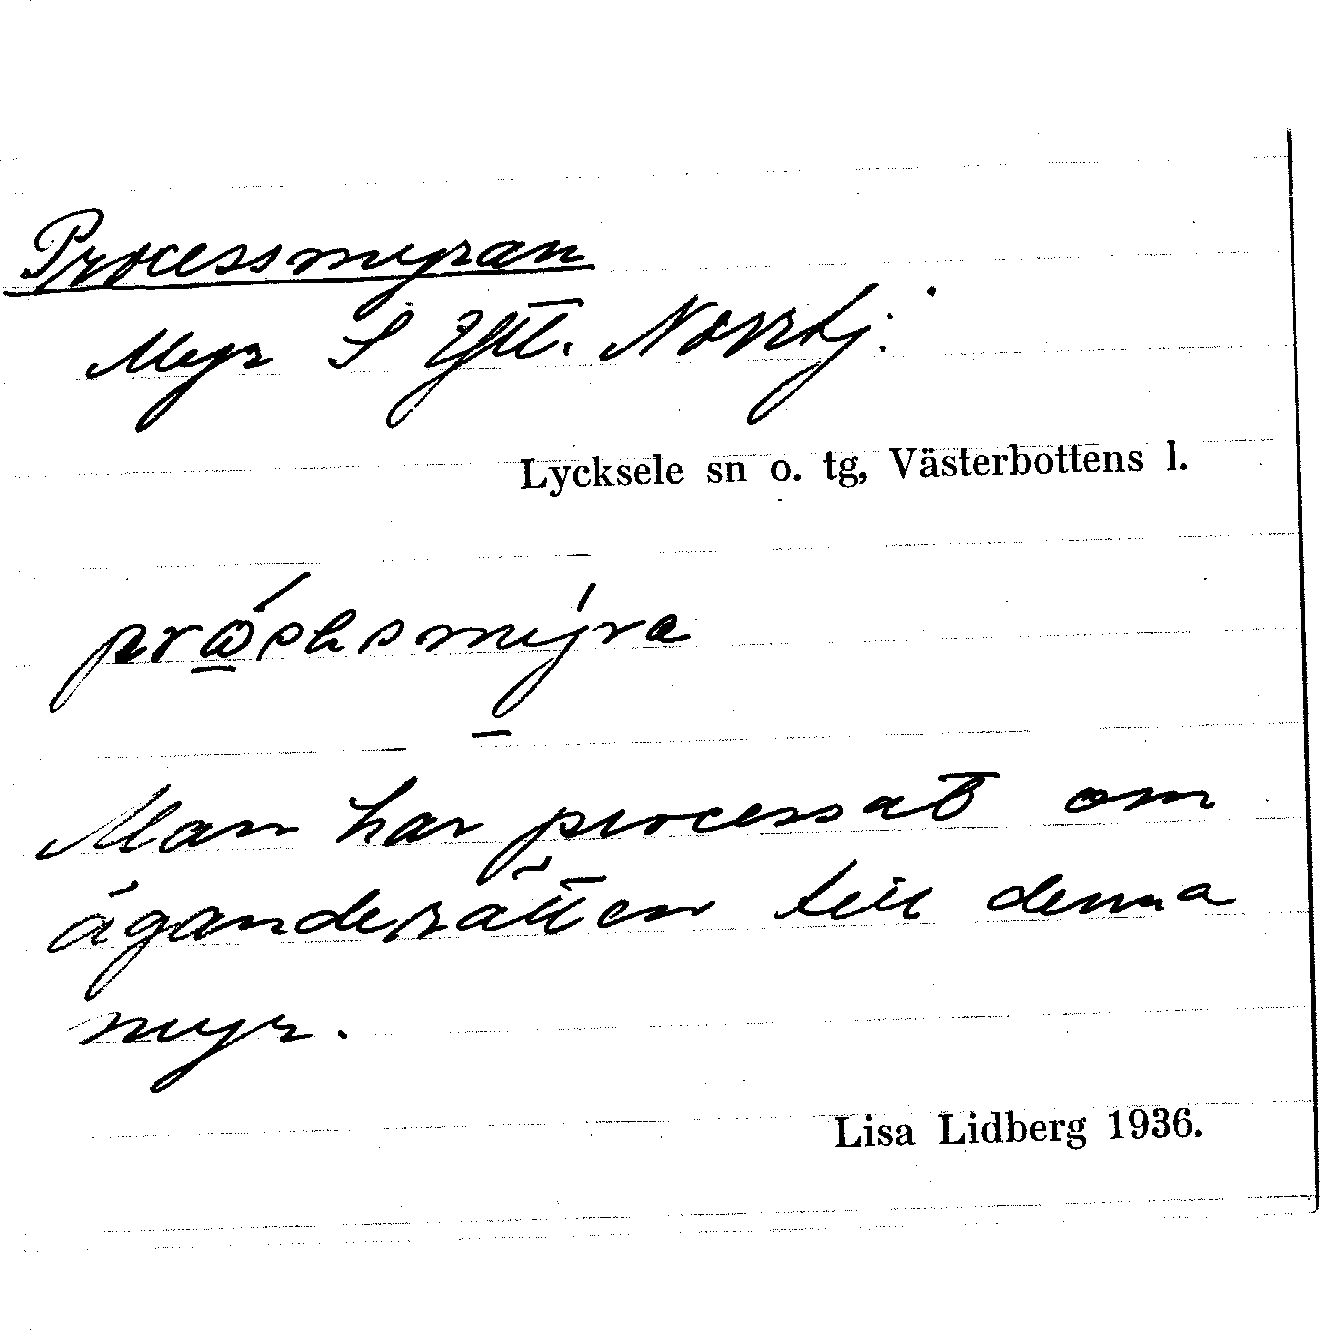 Processmyran
Myr S Norrbj.
Lycksele sn o. tg, Västerbottens l.
Man har processat om
äganderätten till denna
myr.
Lisa Lidberg 1936.